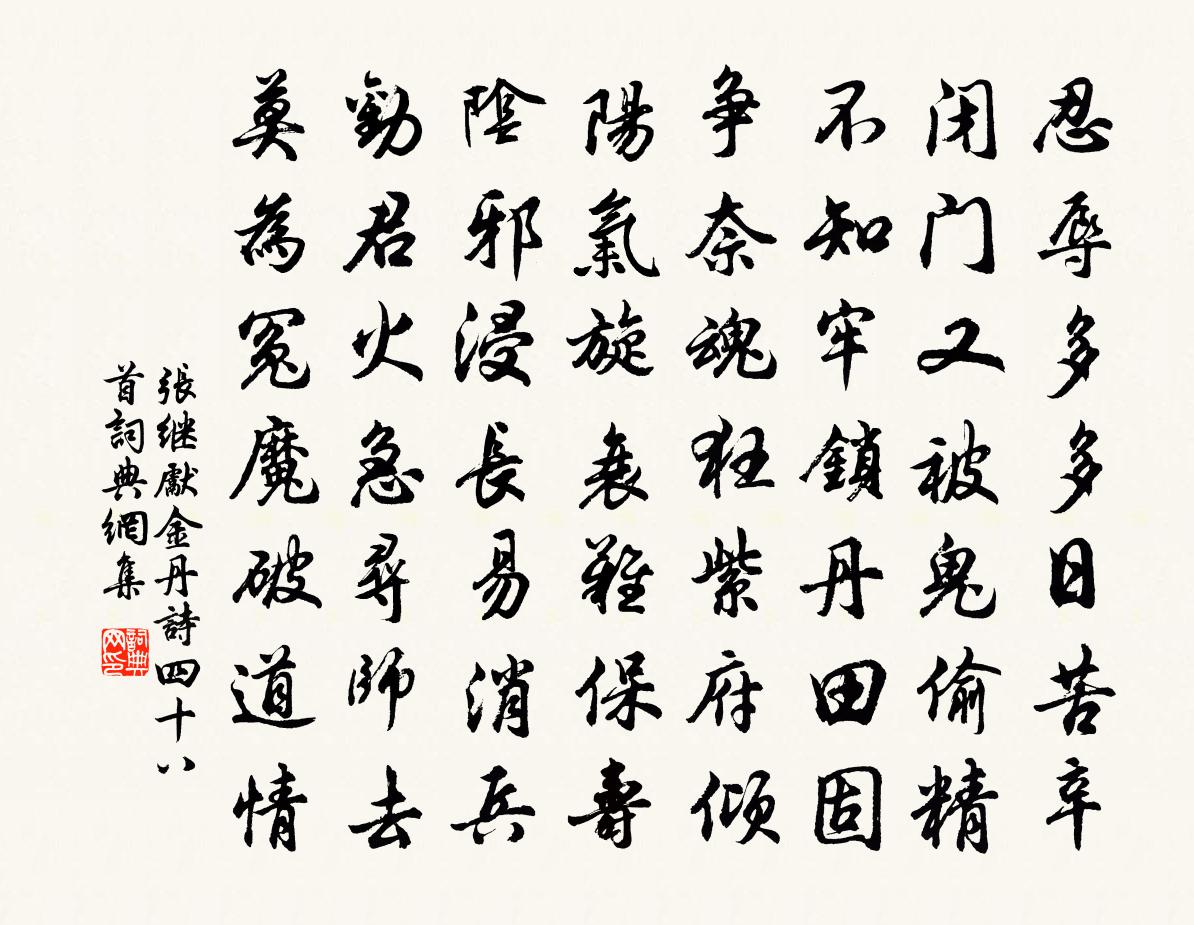 忍辱多多日苦辛
闭门又被鬼偷精
不知牢鎖丹田固
争奈魂狂紫府倾
陽氣旋衰難保壽
陰邪浸長易消兵
勸君火急尋師去
莫為冤魔破道情
張继獻金丹詩四十八
首詞典網集
詞典网印